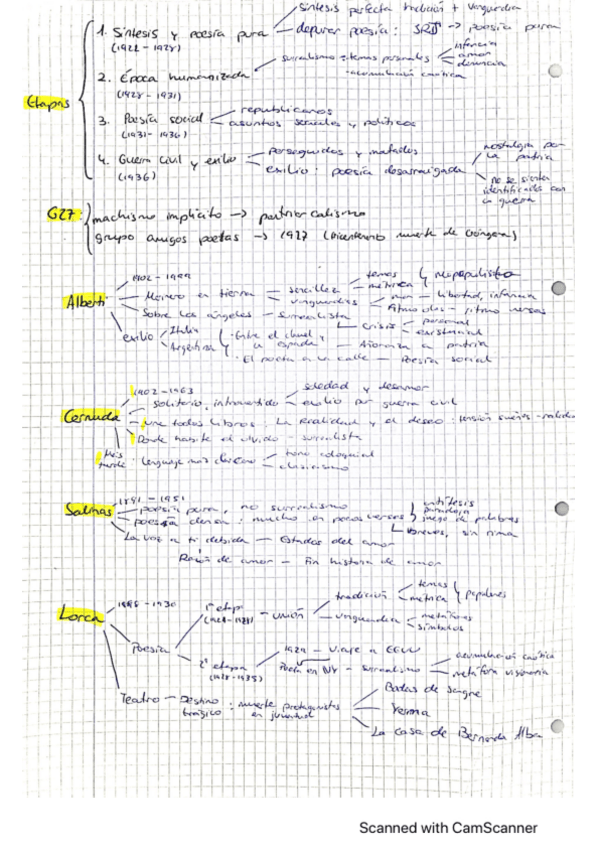 síntesis perfecta tradición + vanguardia
1. Síntesis y poesía pura
depurar poesía: → poesía pura
(1922 - 1928)
infancia
surrealismo: temas personales
amor
denuncia
2. Época humanizada
acumulación caótica
(1928 - 1931)
Etapas
republicanos
3. Poesía social
asuntos sociales y políticos
(1931 - 1936)
nostalgia por la patria
perseguidos y matados
4. Guerra civil y exilio
exilio: poesía desarraigada
(1936)
no se siente identificada con la guerra
G27:
machismo implícito → patriarcalismo
grupo amigos poetas → 1927 (bicentenario muerte de Góngora)
1902 - 1999
temas
neopopulista
Alberti
Marinero en tierra
sencillez
métrica
vanguardias
mar - libertad, infancia
Sobre los ángeles - surrealista
crisis
personal
existencial
exilio
Italia
Argentina
Entre el clavel y la espada
Añoranza a patria
El poeta en la calle - Poesía social
1902 - 1963
soledad y desamor
Cernuda
solitario, introvertido
exilio por guerra civil
une todos libros: La Realidad y el deseo: tensión sueños - realidad
Donde habite el olvido - surrealista
más tarde: lenguaje más
tono coloquial
clasicismo
1891 - 1951
antítesis
Salinas
poesía pura, no surrealismo
paradoja
poesía densa: mucho en pocos versos
juego de palabras
breves, sin rima
La voz a ti debida - Estados del amor
Razón de amor - Fin historia de amor
1898 - 1936
Lorca
1ª etapa
(1921 - 1928)
unión
tradición
temas
métrica
populares
vanguardia
metáforas
símbolos
Poesía
2ª etapa
(1928 - 1935)
1929 - Viaje a EEUU
Poeta en NY - surrealismo
acumulación caótica
metáfora visionaria
Teatro - Destino trágico: muerte protagonistas en juventud
Bodas de sangre
Yerma
La casa de Bernarda Alba
Scanned with CamScanner